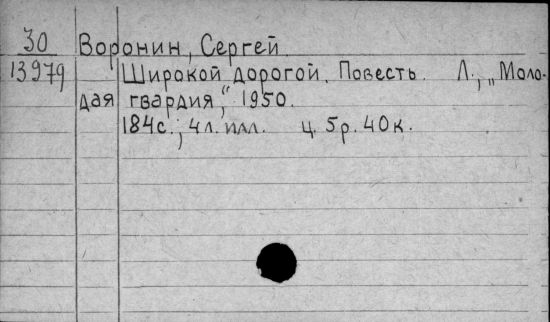 30 Воронин, Сергей
13979 Широкой дорогой. Повесть. Л., „Моло-
дая гвардия“, 1950.
184с.; 4л. илл. ц. 5р. 40к.